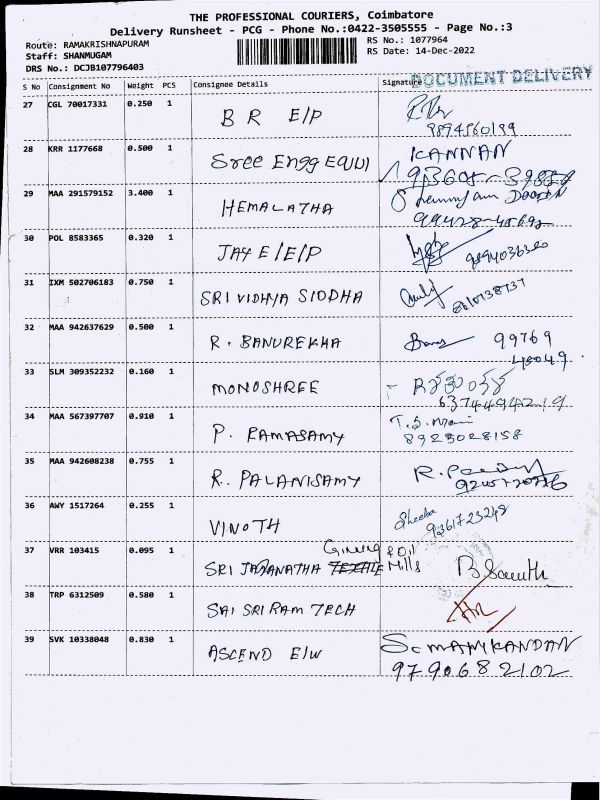 THE PROFESSIONAL COURIERS, Coimbatore
Delivery Runsheet - PCG - Phone No.:0422-3505555 - Page No.:3
Route: RAMAKRISHNAPURAM
RS No.: 1077964
Staff: SHANMUGAM
RS Date: 14-Dec-2022
DRS No.: DCJB107796403
DOCUMENT DELIVERY
S No Consignment No Weight PCS Consignee Details Signature
27 CGL 70017331 0.250 1 B R E/P
9894560199
28 KRR 1177668 0.500 1 Sree Engg EQUI KANNAN
29 MAA 291579152 3.400 1 HEMALATHA
30 POL 8583365 0.320 1 JAY E/E/P
9894036380
31 IXM 502706183 0.750 1 SRI VIDHYA SIDDHA
8610738737
32 MAA 942637629 0.500 1 R. BANUREKHA 99769
48049
33 SLM 309352232 0.160 1 MONOSHREE
6374494219
34 MAA 567397707 0.910 1 P. RAMASAMY T.S. Mani
8923028158
35 MAA 942608238 0.755 1 R. PALANISAMY
36 AWY 1517264 0.255 1 VINOTH Sheeba
9361723248
37 VRR 103415 0.095 1 SRI JAGANATHA TEXTILE Ginning & Oil Mills
38 TRP 6312509 0.580 1 SAI SRI RAM TECH
39 SVK 10338048 0.830 1 ASCEND E/W S. MANIKANDAN
9790682102